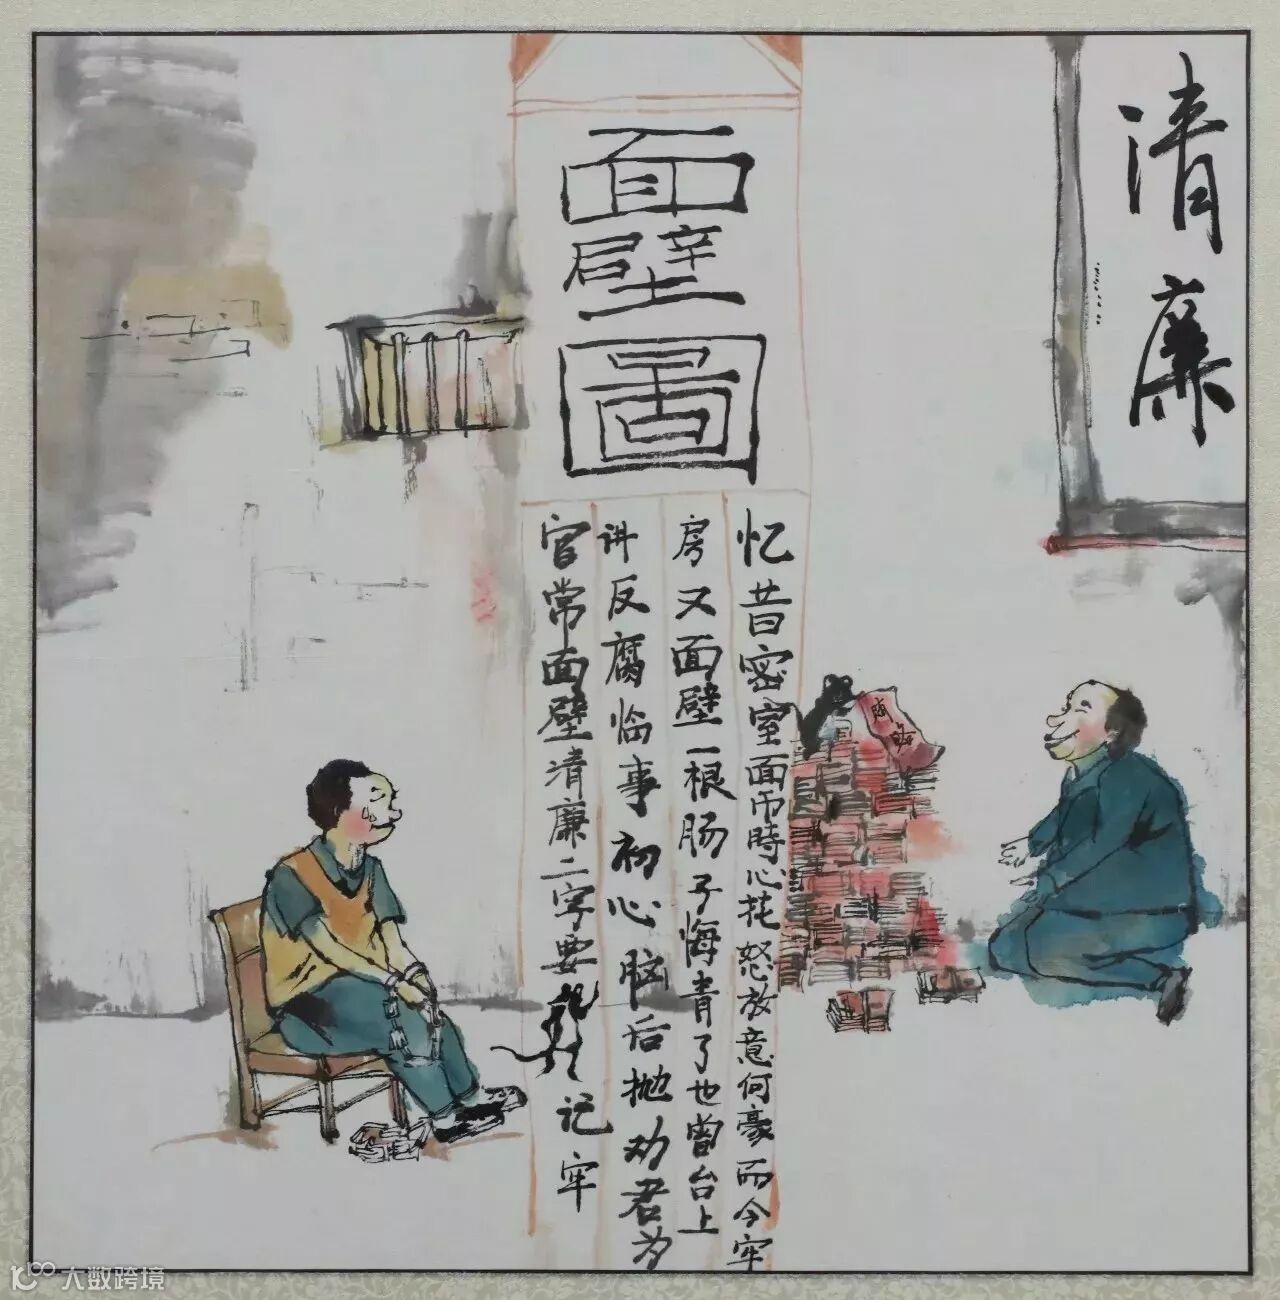 清廉
面壁圖
忆昔密室面币時心花怒放意何豪而今牢
房又面壁一根肠子悔青了也曾台上
讲反腐临事初心脑后抛劝君为
官常面壁清廉二字要记牢
贿赂
大数跨境